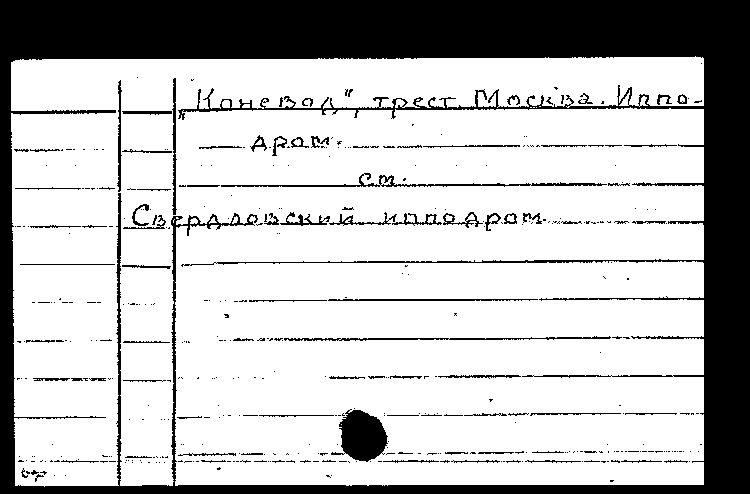 „Коневод", трест. Москва. Иппо-
дром.
см.
Свердловский ипподром.